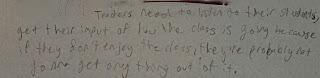 Teachers need to listen to their students,
get their input of how the class is going because
if they don't enjoy the class, they're probably not
gonna get any thing out of it.